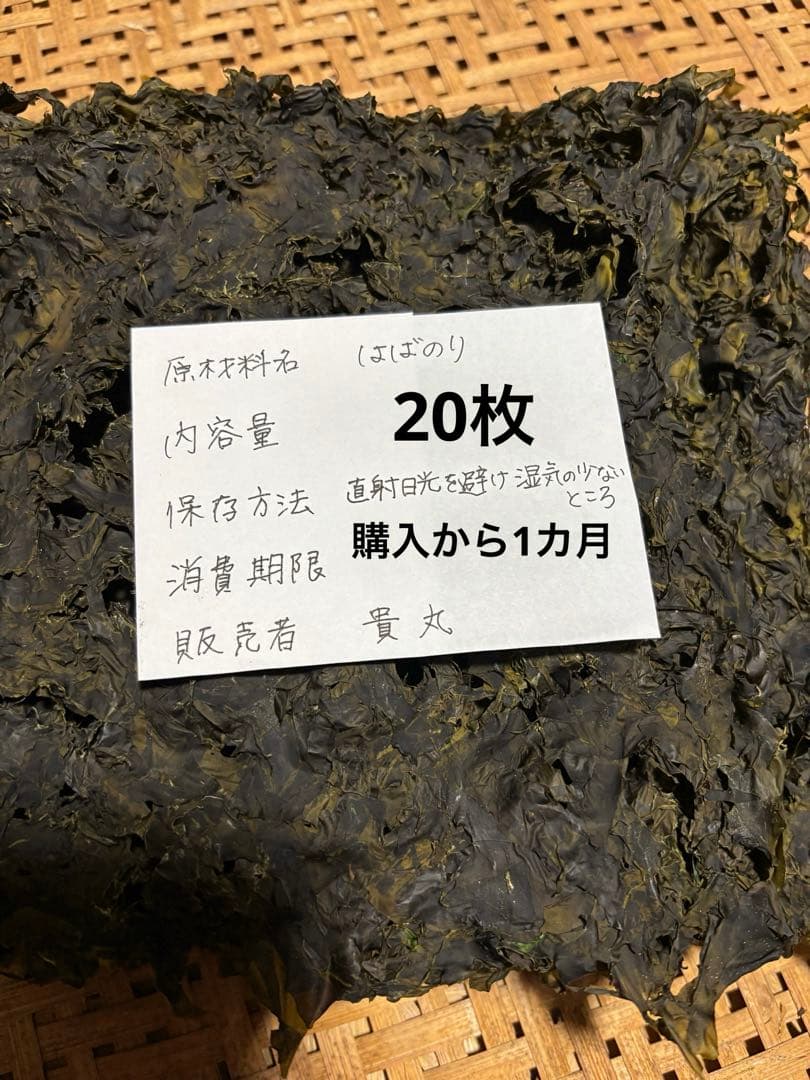 原材料名 はばのり
内容量 20枚
保存方法 直射日光を避け湿気の少ない
ところ
消費期限 購入から1カ月
販売者 貴丸